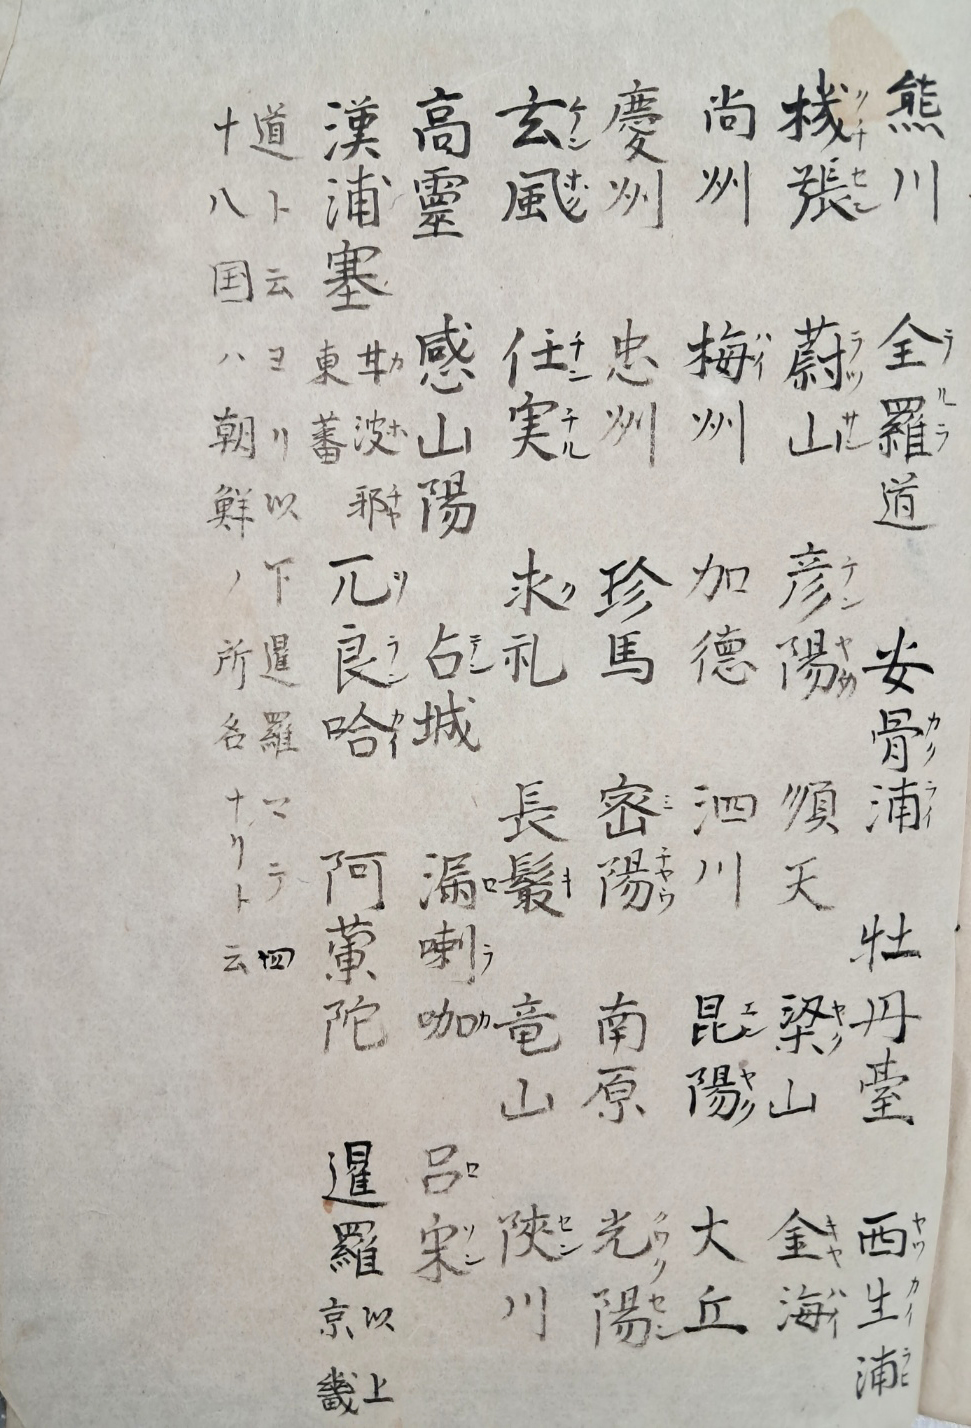 熊川 全羅道 安骨浦 牡丹臺 西生浦
機張 蔚山 彦陽 順天 梁山 金海
尚州 梅州 加德 泗川 昆陽 大丘
慶州 忠州 珍馬 密陽 南原 光陽
玄風 任実 求礼 長鬚 竜山 陝川
高靈 感山陽 占城 漏喇咖 呂宋
漢浦塞 東蕃 井波耶 兀良哈 阿蘭陀 暹羅 以上京畿
道ト云ヨリ以下暹羅マテ四
十八国ハ朝鮮ノ所名ナリト云